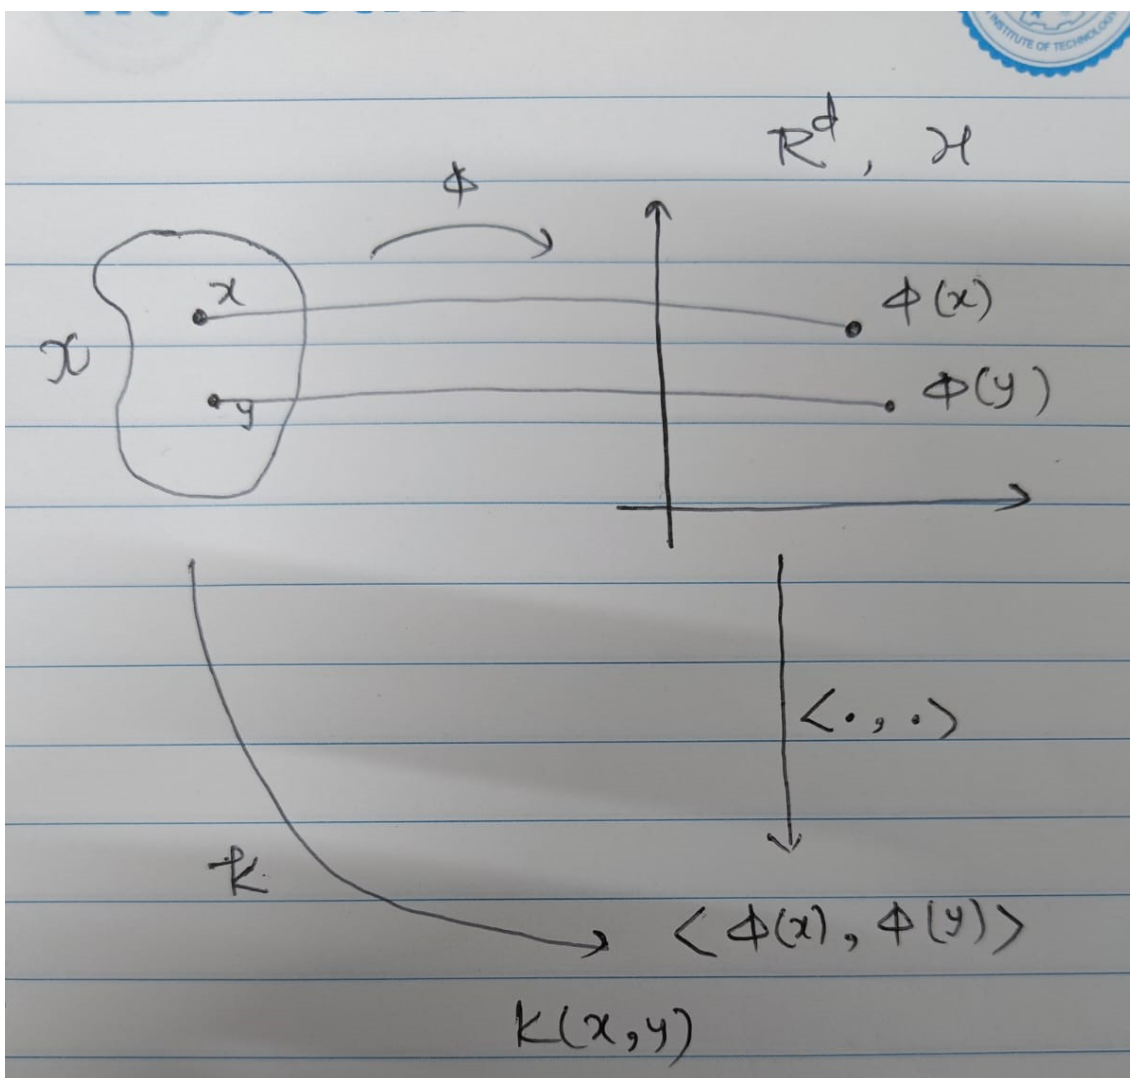 INSTITUTE OF TECHNOLOGY
ℝᵈ, ℋ
ϕ
x
ϕ(x)
𝒳
y
ϕ(y)
<·,·>
k
<ϕ(x), ϕ(y)>
K(x,y)